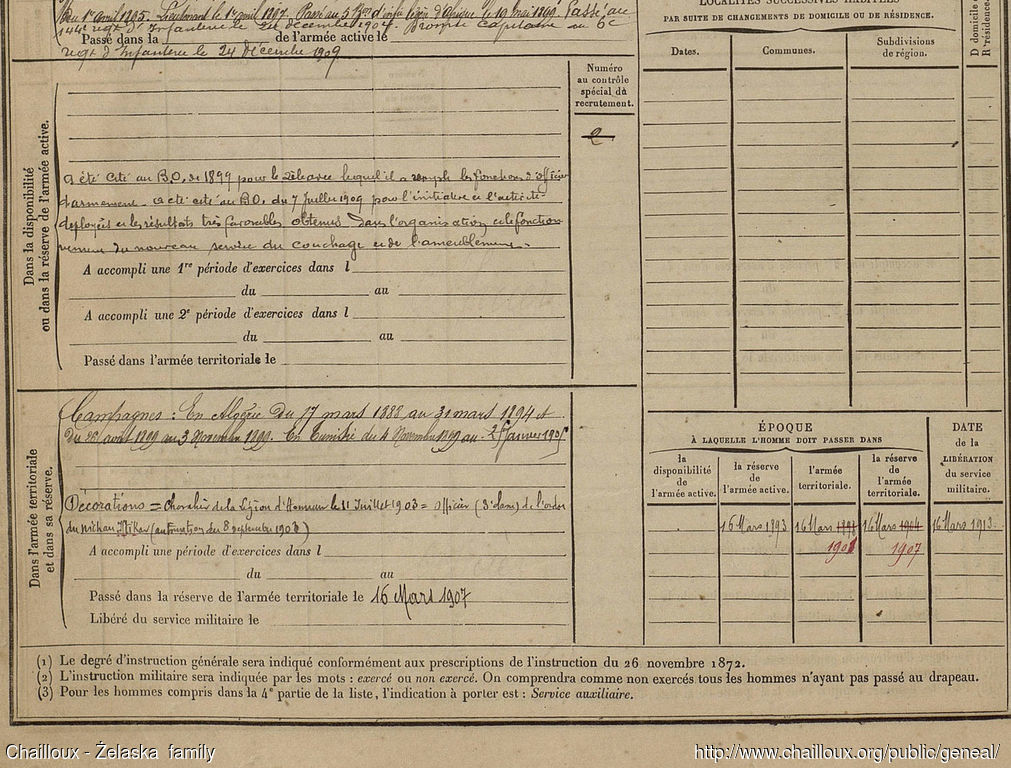 1er avril 1895. Lieutenant le 1er avril 1897. Passé au 5 d'Afrique le 19 mai 1899. Passé au
144e regt d'Infanterie le décembre 1904 Promu Capitaine au 6e
Passé dans la de l'armée active le
regt d'Infanterie le 24 décembre 1909
Dans la disponibilité
ou dans la réserve de l'armée active.
Numéro
au contrôle
spécial du
recrutement.
2
a été cité au B.O. de 1899 pour le zèle avec lequel il a rempli les fonctions d'officier
d'armement. a été cité au B.O. du 7 Juillet 1909 pour l'initiative et l'activité
déployées et les résultats très favorables obtenus dans l'organisation et le fonction-
nement du nouveau service du couchage et de l'ameublement.
A accompli une 1re période d'exercices dans l
du au
A accompli une 2e période d'exercices dans l
du au
Passé dans l'armée territoriale le
Dans l'armée territoriale
et dans sa réserve.
Campagnes : En Algérie du 17 mars 1888 au 31 mars 1894 et
du août 1899 au 3 Novembre 1899. En Tunisie du 4 Novembre 1899 au Janvier 1905
Décorations = Chevalier de la Légion d'Honneur le 11 Juillet 1903 = Officier (3e clone) de l'ordre
du Nichan Iftikar (autorisation du 8 septembre 1901)
A accompli une période d'exercices dans l
du au
Passé dans la réserve de l'armée territoriale le 16 Mars 1907
Libéré du service militaire le
LOCALITÉS SUCCESSIVES HABITÉES
PAR SUITE DE CHANGEMENTS DE DOMICILE OU DE RÉSIDENCE.
Dates. Communes. Subdivisions
de région.
D domicile
R résidence.
ÉPOQUE
À LAQUELLE L'HOMME DOIT PASSER DANS
la
disponibilité
de
l'armée active.
la réserve
de
l'armée active.
l'armée
territoriale.
la réserve
de
l'armée
territoriale.
DATE
de la
LIBÉRATION
du service
militaire.
16 Mars 1893 16 Mars 16 Mars 1904 16 Mars 1913.
1901 1907
(1) Le degré d'instruction générale sera indiqué conformément aux prescriptions de l'instruction du 26 novembre 1872.
(2) L'instruction militaire sera indiquée par les mots : exercé ou non exercé. On comprendra comme non exercés tous les hommes n'ayant pas passé au drapeau.
(3) Pour les hommes compris dans la 4e partie de la liste, l'indication à porter est : Service auxiliaire.
Chailloux - Żelaska family http://www.chailloux.org/public/geneal/